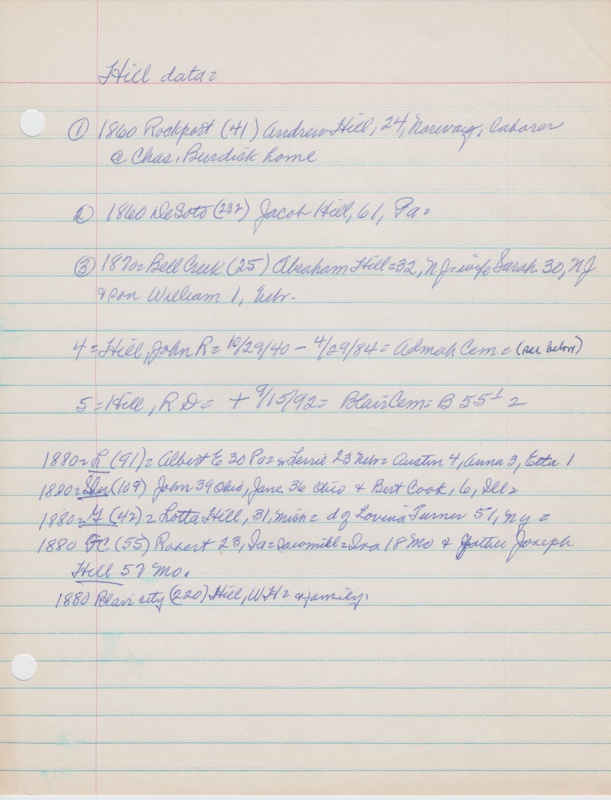 Hill data=
① 1860 Rockport (41) Andrew Hill, 24, Norway, laborer
@ Chas. Burdick home
② 1860 DeSoto (232) Jacob Hill, 61, Pa=
③ 1870= Bell Creek (25) Abraham Hill=32, NJ=wife Sarah 30, NJ
& son William 1, Nebr.
4= Hill, John R= 10/29/40 – 4/29/84= Admah Cem= (see below)
5= Hill, R D= + 9/15/92= Blair Cem= B 55
1880= L (91)= Albert E 30 Pa= Terrie 23 Nebr= Austin 4, Anna 3, Etta 1
1880= Sher (109) John 39 Ohio, Jane 36 Ohio & Bert Cook, 6, Ill=
1880= G (42)= Lotta Hill, 31, Minn= dg Lovina Turner 51, NY=
1880 FC (55) Robert 23, Ia=sawmill=Ira 18 Mo & father Joseph
Hill 57 Mo.
1880 Blair city (220) Hill, WH= & family.